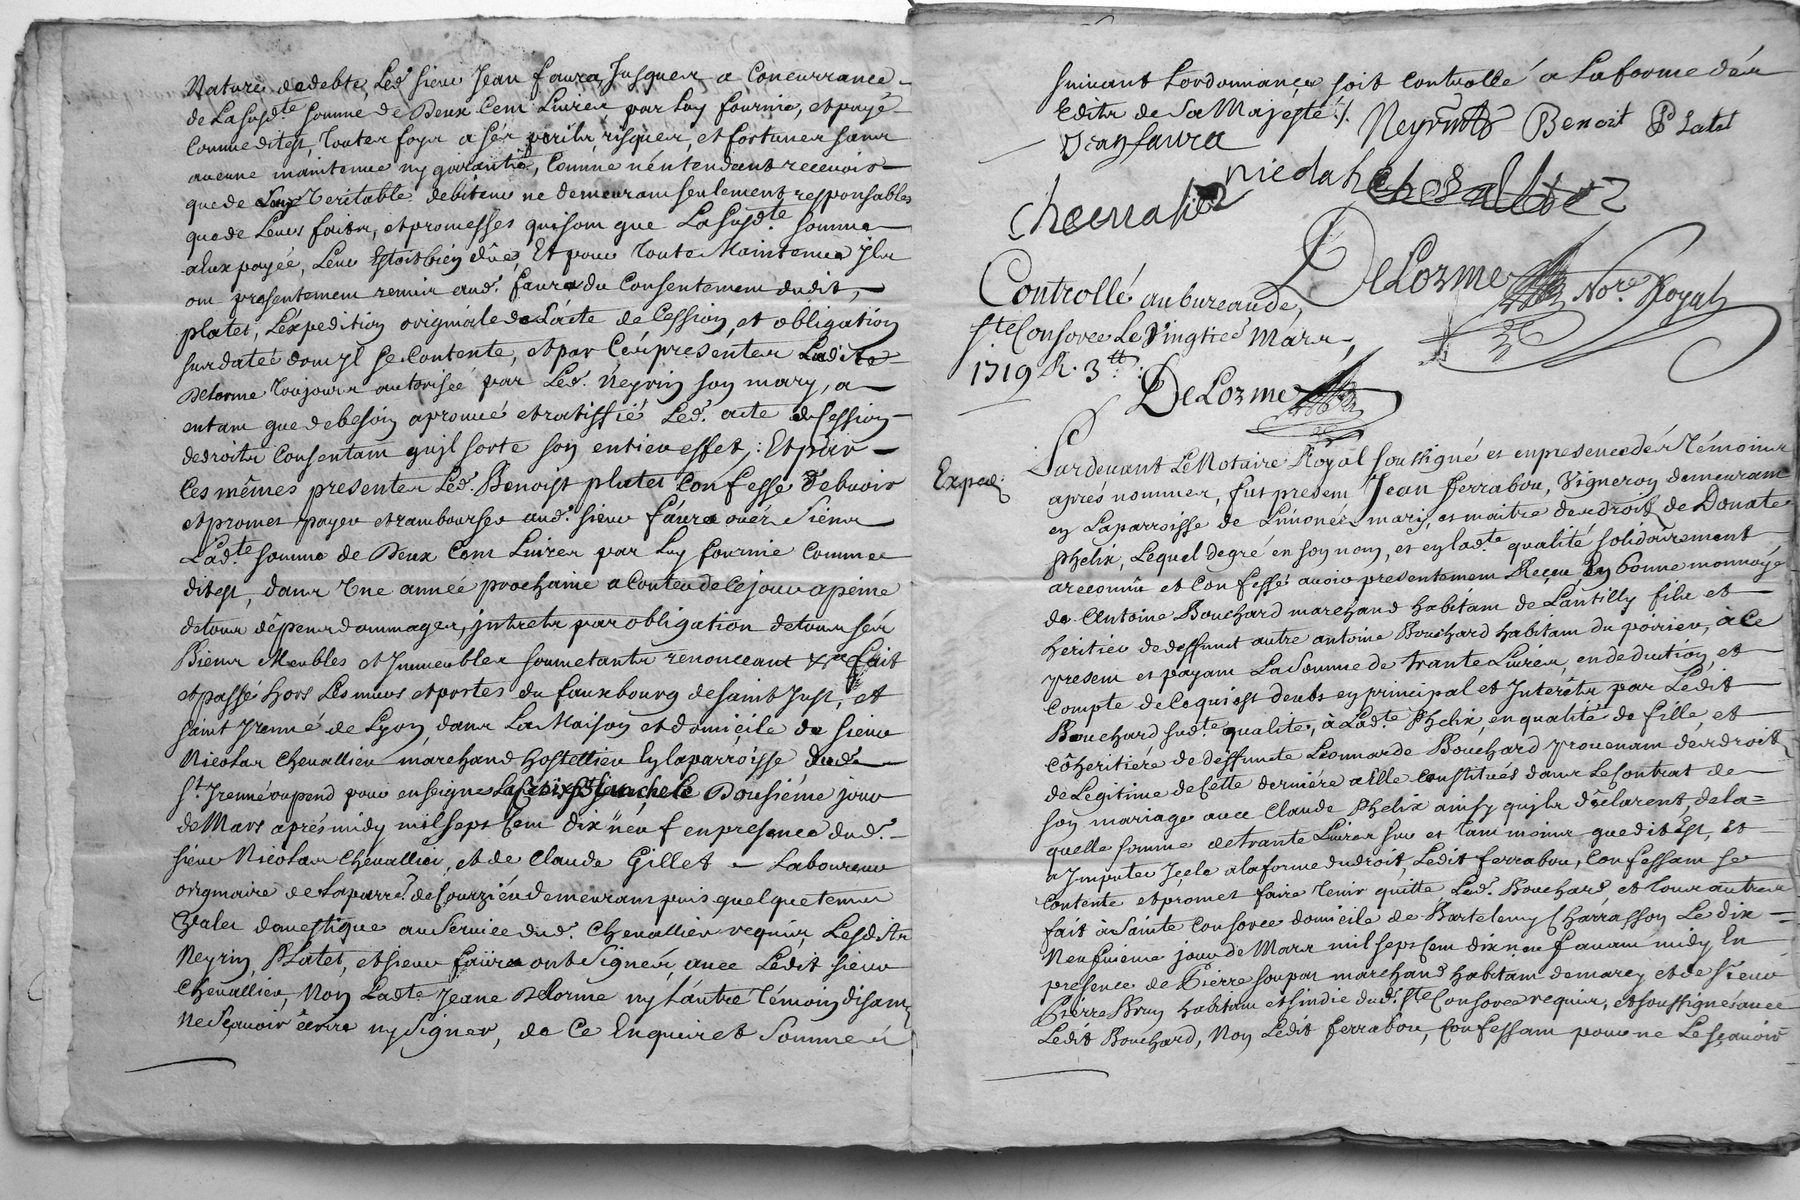 Nature dedebte, Led.t sieur Jean faura, Jusques a Concurrance
de Lasusd.te somme de Deux Cent Livres par luy fournie, et payé
Comme ditest, touter foys a ses perils, risques, et fortunes sans
aucune maintenue ny garantie, Comme n'entendant recevoir
que de veritable debiteur ne demeurans seulement responsables
que de Leurs faits, et promesses quisont que Lasusd.te somme
aluy payée, Leur Estoit bien düe, Et pour toute Maintenue Ils
ont presentement remis aud.t faura du Consentement dudit,
platet, L'expedition originale de L'acte de Cession, et obligation
susdatée dont jl se Contente, et par Ces presentes Ladite
Delorme toujours autorisée par Led.t Neyrin son mary, a
entant que debesoin aprouvé et ratiffié Led.t acte de Cession
dedroits Consentant qujl sorte son entier effet; Et par
Ces mêmes presentes Led.t Benoist platet Confesse debvoir
et promet payer et rambourser aud.t sieur faura
Lad.te somme de Deux Cent Livres par Luy fournie Comme
ditest, dans Une année prochaine a Conter de Ce jour apeine
de tous dêpens dommages, jntrets par obligation de tous ses
Biens Meubles et Jmmeubles soumetants renonceant fait
et passé hors Les murs et portes du fauxbourg de saint Just, et
saint Jrenné de Lyon, dans La Maison et domicile de sieur
Nicolas Chevallier marchand hostellier En laparroisse dud.t
s.t Jrenné oupend pour enseigne La Croix blanche Le Dousiéme jour
de Mars aprés midy mil sept Cent dix neuf enpresence dud.t
sieur Nicolas Chevallier, et de Claude Gillet Laboureur
originaire de Laparr.e de Courzieu demeurant puis quelque temps
Valet domestique au service dud.t Chevallier requis, Lesdits
Neyrin, Platet, et sieur faura ont signés, avec Ledit sieur
Chevallier, Non Ladte Jeane Delorme ny L'autre témoin disant
Ne sçavoir écrire ny signer, de Ce Enquis et Sommés
suivant Lordonnance soit Controllé a La forme des
Edits de Sa Majesté ./.
Neyrin Benoit Platet
Jean faura
Chevallier
DeLorme No.re Royal
Controllé au bureau de
s.te Consorce Le Vingtieé Mars
1719 R. 3tt
DeLorme
Exped.
Pardevant Le Notaire Royal soussigné et enpresence des témoins
aprés nommer, fut present Jean ferrabou, Vigneron demeurant
en Laparroisse de Limonés mary, et maitre des droits de Donate
Phelix, Lequel degré en son nom, et en lad.te qualité solidairement
areconnu et Confessé avoir presentement Reçeu En bonne monnoyé
de Antoine Bouchard marchand habitant de Lantilly fils et
heritier de deffunt autre antoine Bouchard habitant du poirier, à Ce
present et payant La somme de trante Livres, en deduction, et
Compte de Ce quiest deubs en principal et Jnterêts par Ledit
Bouchard susd.te qualité, à Ladte Phelix, en qualité de fille, et
Côheritiére de deffunte Léonnarde Bouchard provenant des droits
de Legitime de Cette derniére a elle Constitués dans Le Contrat de
son mariage avec Claude Phelix ainsy qujls déclarent, de la=
quelle somme de trante Livres sur et tant moins que dit Est, Et
a Jmputer Jçelle a la forme du droit, Ledit ferrabou, Confessant se
Contente et promet faire tenir quitte Led.t Bouchard et tous autres
fait à Sainte Consorce domicile de Bartelemy Charrasson Le dix=
Neufuieme jour de Mars mil sept Cent dix neuf avant midy En
presence de Pierre soupat marchand habitant de marcy et de Sieur
Pierre Brun habitant et sindic dud.t s.te Consorce requis, et soussignés avec
Ledit Bouchard, Non Ledit ferrabou, Confessant pour ne Le sçavoir